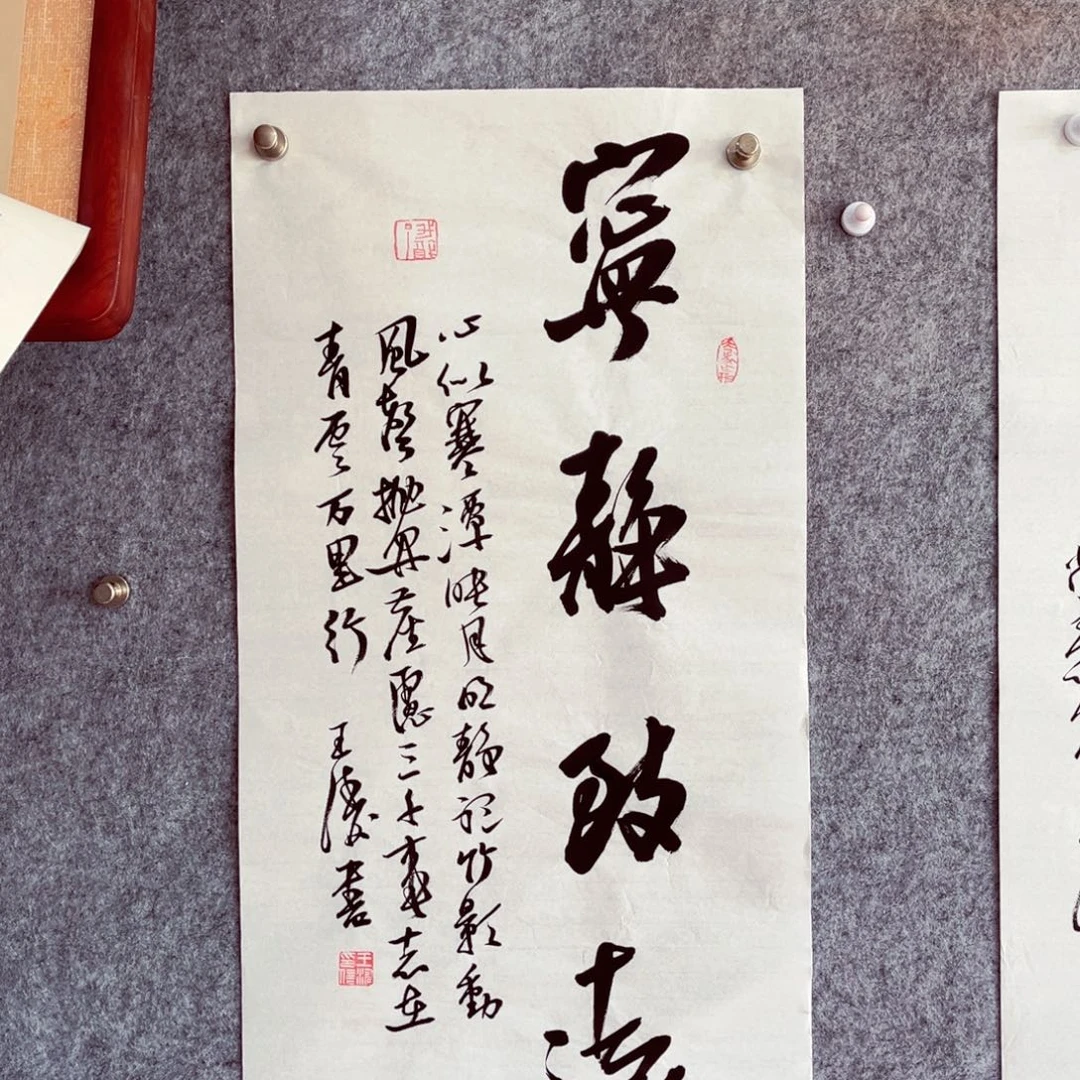 寧靜致遠
心似寒潭映月明靜竹影動
風聲拋塵慮三千志在
青雲万里行 王書